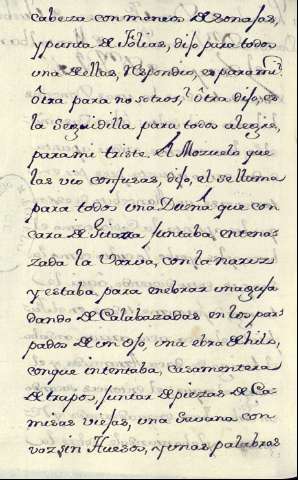 cabeza con meneos de sonajas,
y punta de Folias, dijo para todos
una de ellas, Respondio, es para mi.
òtra para nosotros, òtra dijo, es
la Seguidilla para todos alegre,
para mi triste. el Mozuelo que
las vio confusas, dijo, el se llama
para todos una Dueña que con
cara de Gitana juntaba, entena
zada la Varva, con la nariz
y estaba para enebrar una guja
dando de Calabazadas en los par
pados de un ojo, una ebra de hilo,
con que intentaba, casamentera
de trapos, juntar de piezas de Ca-
misas viejas, una Susana con
voz sin Huesos, y unas palabras